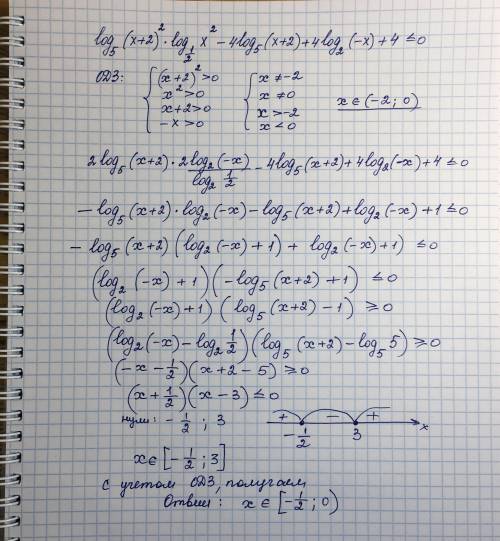 log₅(x+2)² · log_{1/2} x² - 4log₅(x+2) + 4log₂(-x) + 4 ≤ 0
ОДЗ: { (x+2)² > 0 { x ≠ -2
x² > 0 x ≠ 0
x+2 > 0 x > -2 x ∈ (-2; 0)
-x > 0 x < 0
2log₅(x+2) · 2 log₂(-x) / log₂ 1/2 - 4log₅(x+2) + 4log₂(-x) + 4 ≤ 0
- log₅(x+2) · log₂(-x) - log₅(x+2) + log₂(-x) + 1 ≤ 0
- log₅(x+2) (log₂(-x) + 1) + log₂(-x) + 1) ≤ 0
(log₂(-x) + 1)(-log₅(x+2) + 1) ≤ 0
(log₂(-x) + 1)(log₅(x+2) - 1) ≥ 0
(log₂(-x) - log₂ 1/2)(log₅(x+2) - log₅ 5) ≥ 0
(-x - 1/2)(x + 2 - 5) ≥ 0
(x + 1/2)(x - 3) ≤ 0
нули: - 1/2 ; 3 + - +
-1/2 3 x
x ∈ [-1/2 ; 3]
с учетом ОДЗ, получаем
Ответ: x ∈ [-1/2 ; 0)